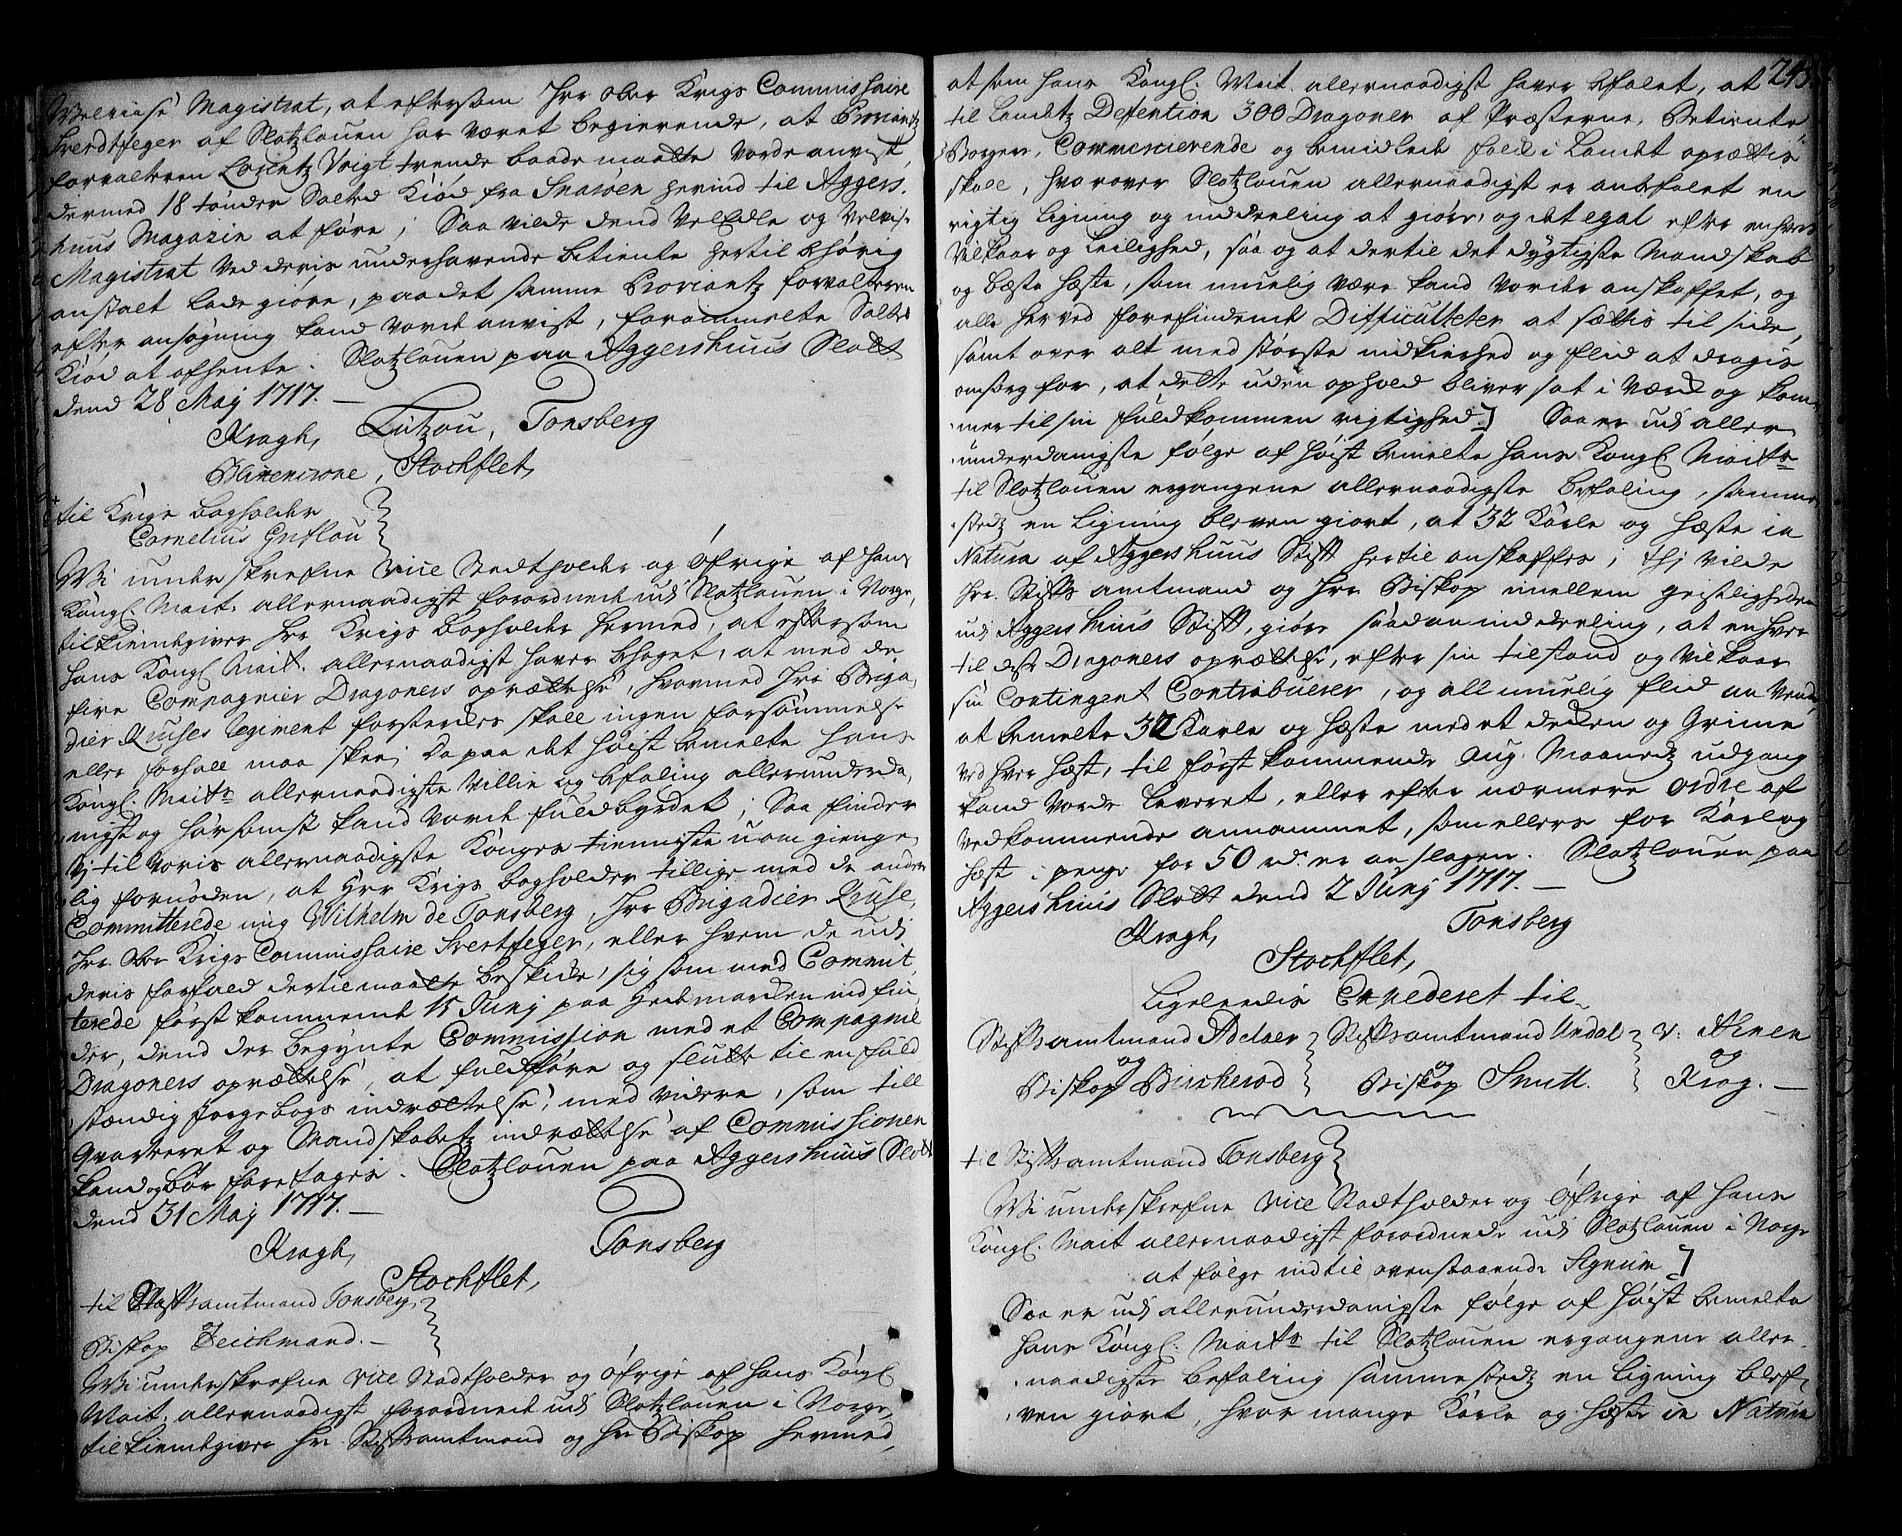 Velviise Magistrat, at eftersom Hr Ober Krigs Commissaire
Svertfeger af Slotzlouen har været begierende, at Proviantz
forvalteren Lorentz Voigt trende baade maatte vorde anvist,
dermed 18 tønder Salted Kiød fra Snarøen herind til Aggers-
huus Magazin at føre; Saa vilde dend VelEdle og Velviise
Magistrat ved deris underhavende betiente hertil behørig
anstalt lade giøre, paa det samme Proviantz forvalteren
efter ansøgning kand vorde anvist, forommelte Salted
Kiød at afhente. Slotzlouen paa Aggershuus Slott
dend 28 Maj 1717. —
Kragh, Lützou, Tonsberg
Blixencrone, Stochflet,
til Krigs bogholder
Cornelius
Wi underskrefne Vice Stadtholder og Øfrige af Hans
Kongl. Mait. allernaadigst forordnede udi Slotzlouen i Norge,
tilkiendegiver Hr Krigs bogholder hermed, at eftersom
Hans Kongl Mait. allernaadigst haver behaget, at med de
fire Compagnier Dragoners oprættelse, hvormed Hr Briga-
dier Kruses Regiment forsterckes skall ingen forsømmelse
eller forhall maa skee; Da paa det høist bemelte Hans
Kongl. Maits allernaadigste Villie og befaling allerunderda-
nigst og hørsomst kand vorde fuldbyrdet; Saa finder
Vj til Voris allernaadigste Konges tienniste uomgienge-
lig fornøden, at Hr Krigs bogholder tillige med de andre
Committerede nig Wilhelm de Tonsberg, Hr Brigadier Kruse,
Hr Ober Krigs Commissaire Svertfeger, eller hvem de udi
deris forfald dertil maatte beskicke, sig som med Commit-
terede først kommende 15 Junj paa Hedemarcken indfin-
der, dend der begynte Commission med et Compagnie
Dragoners oprættelse, at fuldføre og slutte til en fuld
stændig indrættelse, med videre, som till
Qvarteret og Mandskabetz indrættelse af Commissionen
kand og bør foretages. Slotzlouen paa Aggershuus Slott
dend 31 Maj 1717. —
Kragh, Tonsberg
Stochflet,
til Stiftsamtmand Tonsberg,
Biskop Deichmand. —
Wi underskrefne Vice Stadtholder og Øfrige af Hans Kongl
Mait. allernaadigst forordnede udi Slotzlouen i Norge,
tilkiendegiver Hr. Stiftsamtmand og Hr Biskop hermed,
243.
at som Hans Kongl. Mait. allernaadigst haver befalet, at
til Landetz Defention 300 Dragoner af Præsterne, Betiente
Borgere, Commercierende og bemidlede folck i Landet oprættis
skall, hvorover Slotzlouen allernaadigst er anbefalet en
rigtig Ligning og inddeeling at giøre, og det egal efter enhvers
Vilkaar og Leilighed, saa og at dertil det dygtigste Mandskab
og beste Heste, som muelig være kand vorder anskaffet, og
alle herved forefindende Difficulteter at sættis til side,
samt over alt med største nidkierhed og flid at dragis
omsorg for, at dette uden ophold bliver sat i Værck og kom-
mer til sin fuldkommen rigtighed] Saa er udi aller
underdanigste følge af høist bemelte Hans Kongl Maits
til Slotzlouen ergangene allernaadigste befaling, samme
stedz en Ligning bleven giort, at 32 Karle og Heste in
Natura af Aggershuus Stift hertil anskaffes; thj vilde
Hr. Stifts amtmand og Hr Biskop imellem geistligheden
udi Aggershuus Stift, giøre saadan inddeeling, at enhver
til disse Dragoners oprættelse, efter sin tilstand og Vilkaar
sin Contingent Contribuerer, og all muelig flid anvende
at bemelte 32 Karle og Heste med et decken og Grime
ved hver Hest, til først kommende Aug. Maanedz udgang
kand vorde Leveret, eller efter nærmere Ordre af
Vedkommende annammet, som ellers for Karl og
Hest i penge for 50 rd. er anslagen. Slotzlouen paa
Aggershuus Slott dend 2 Junj 1717. —
Kragh, Tonsberg
Stochflet,
Ligeleedis Expederet til
Stiftsamtmand Adelaer og Biskop Bircherod
Stiftsamtmand Undal og Biskop Smitt.
v. Ahnen og Krog. —
til Stiftsamtmand Tonsberg
Wi underskrefne Vice Stadtholder og Øfrige af Hans
Kongl. Mait allernaadigst forordnede udi Slotzlouen i Norge
at følge indtil ovenstaaende Signum ]
Saa er udi allerunderdanigste følge af høist bemelte
Hans Kongl. Maits til Slotzlouen ergangene aller-
naadigste befaling sammestedz en Ligning blef-
ven giort, hvor mange Karle og Heste in Natura